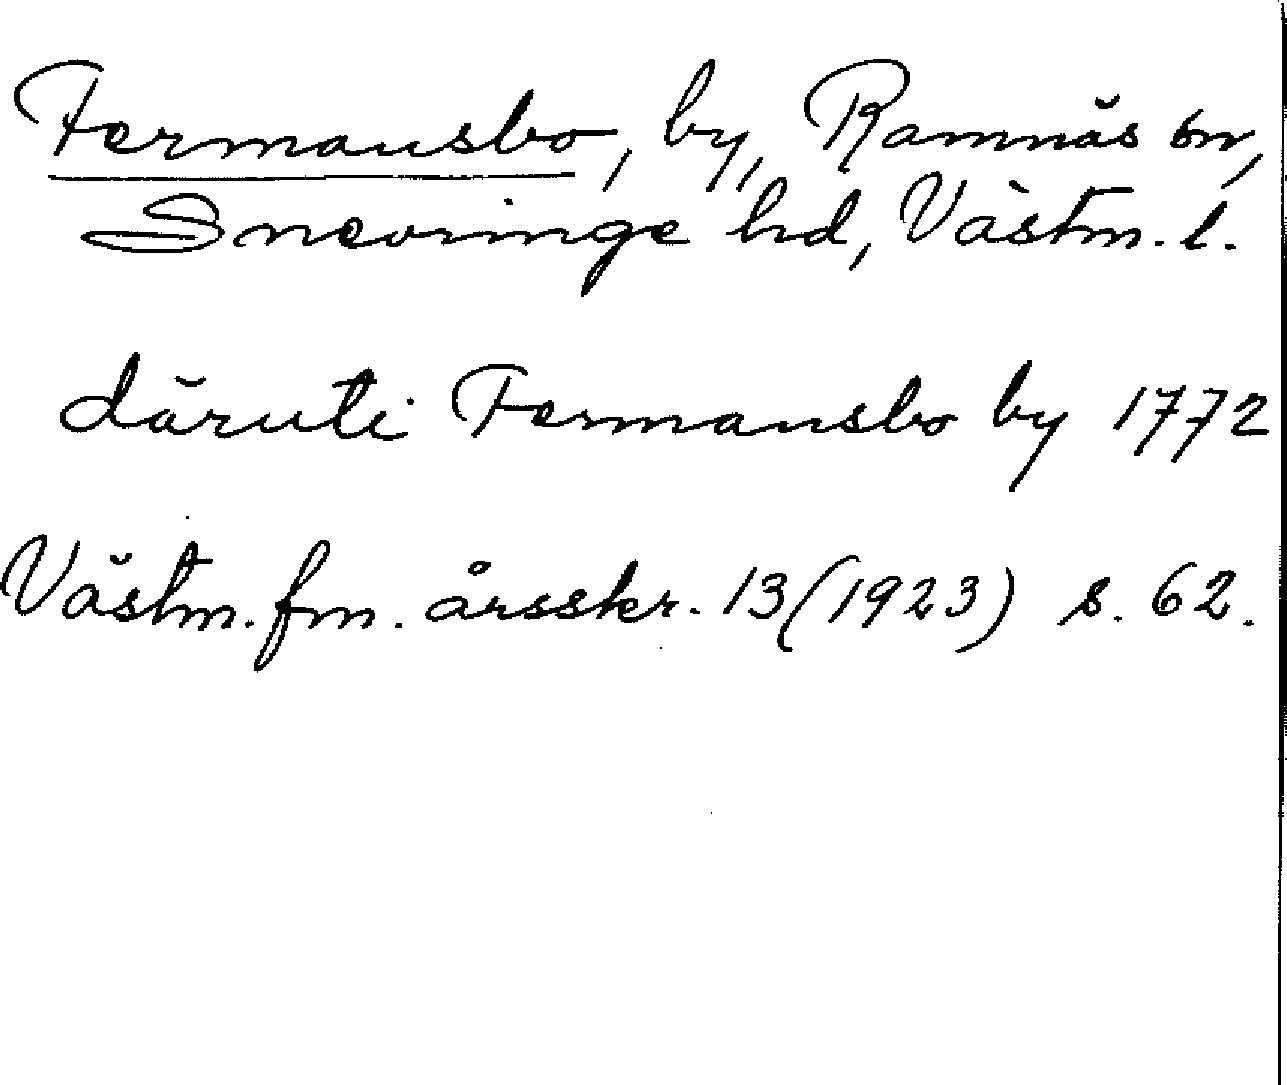 Fermansbo, by, Ramnäs sn,
Snevringe hd, Västm. l.
däruti Fermansbo by 1772
Västm. fm. årsskr. 13 (1923) s. 62.